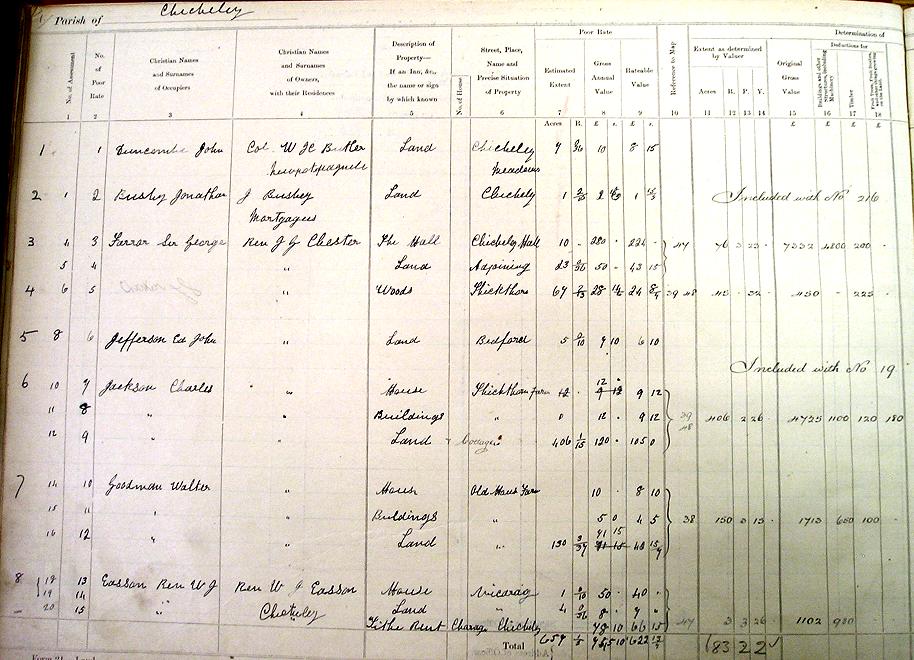 Parish of Chicheley
Poor Rate
Determination of
No. of Assessment
No. of Poor Rate
Christian Names and Surnames of Occupiers
Christian Names and Surnames of Owners, with their Residences
Description of Property— If an Inn, &c., the name or sign by which known
No. of House
Street, Place, Name and Precise Situation of Property
Estimated Extent
Gross Annual Value
Rateable Value
Reference to Map
Extent as determined by Valuer
Original Gross Value
Deductions for
Buildings and other Structures, including Machinery
Timber
Acres R. P. Y.
1 2 3 4 5 6 7 8 9 10 11 12 13 14 15 16 17 18
Acres R. £ s. £ s. £ £ £ £
1 1 Duncombe John Col. W J C Butler Land Chicheley 10 8 15
Newportpagnell Meadows
2 1 2 Bushy Jonathan J Bushey Land Chichely 1 1 Included with No 216
Mortgagees
3 4 3 Farrar Sir George Rev J G Chester The Hall Chichely Hall 10 - 280 - 224 - 47 76 3 23 - 7332 4800 200 -
5 4 " Land Adjoining 23 50 - 43 15
4 6 5 " Woods Thickthorn 67 28 24 39 48 45 - 32 450 - 225
5 8 6 Jefferson Ed John " Land Bedford 5 9 10 6 10
Included with No 19
6 10 7 Jackson Charles " House Thickthorn Farm 12 - 9 12 9 12
11 8 " " Buildings " 0 12 - 9 12 39 48 406 2 26 - 4725 1100 120 180
12 9 " " Land Cottages 406 120 - 105 0
7 14 10 Goodman Walter " House Old Maus Farm 10 - 8 10
15 11 " " Buildings " 5 0 4 5 38 150 3 15 - 1713 650 100 -
16 12 " Land " 130 41 15
8 18 13 Easson Rev W J Rev W J Easson House Vicarag 1 50 - 40 -
19 14 " Chicheley Land " 4 8 - 7
20 15 Tithe Rent Charge Chicheley 78 10 66 15 47 3 3 26 - 1102 900
Total 659 622 183 2 2